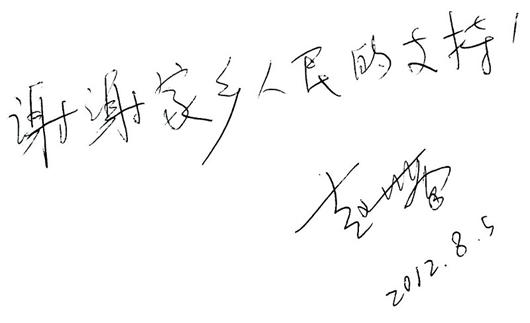 谢谢家乡人民的支持!
2012.8.5